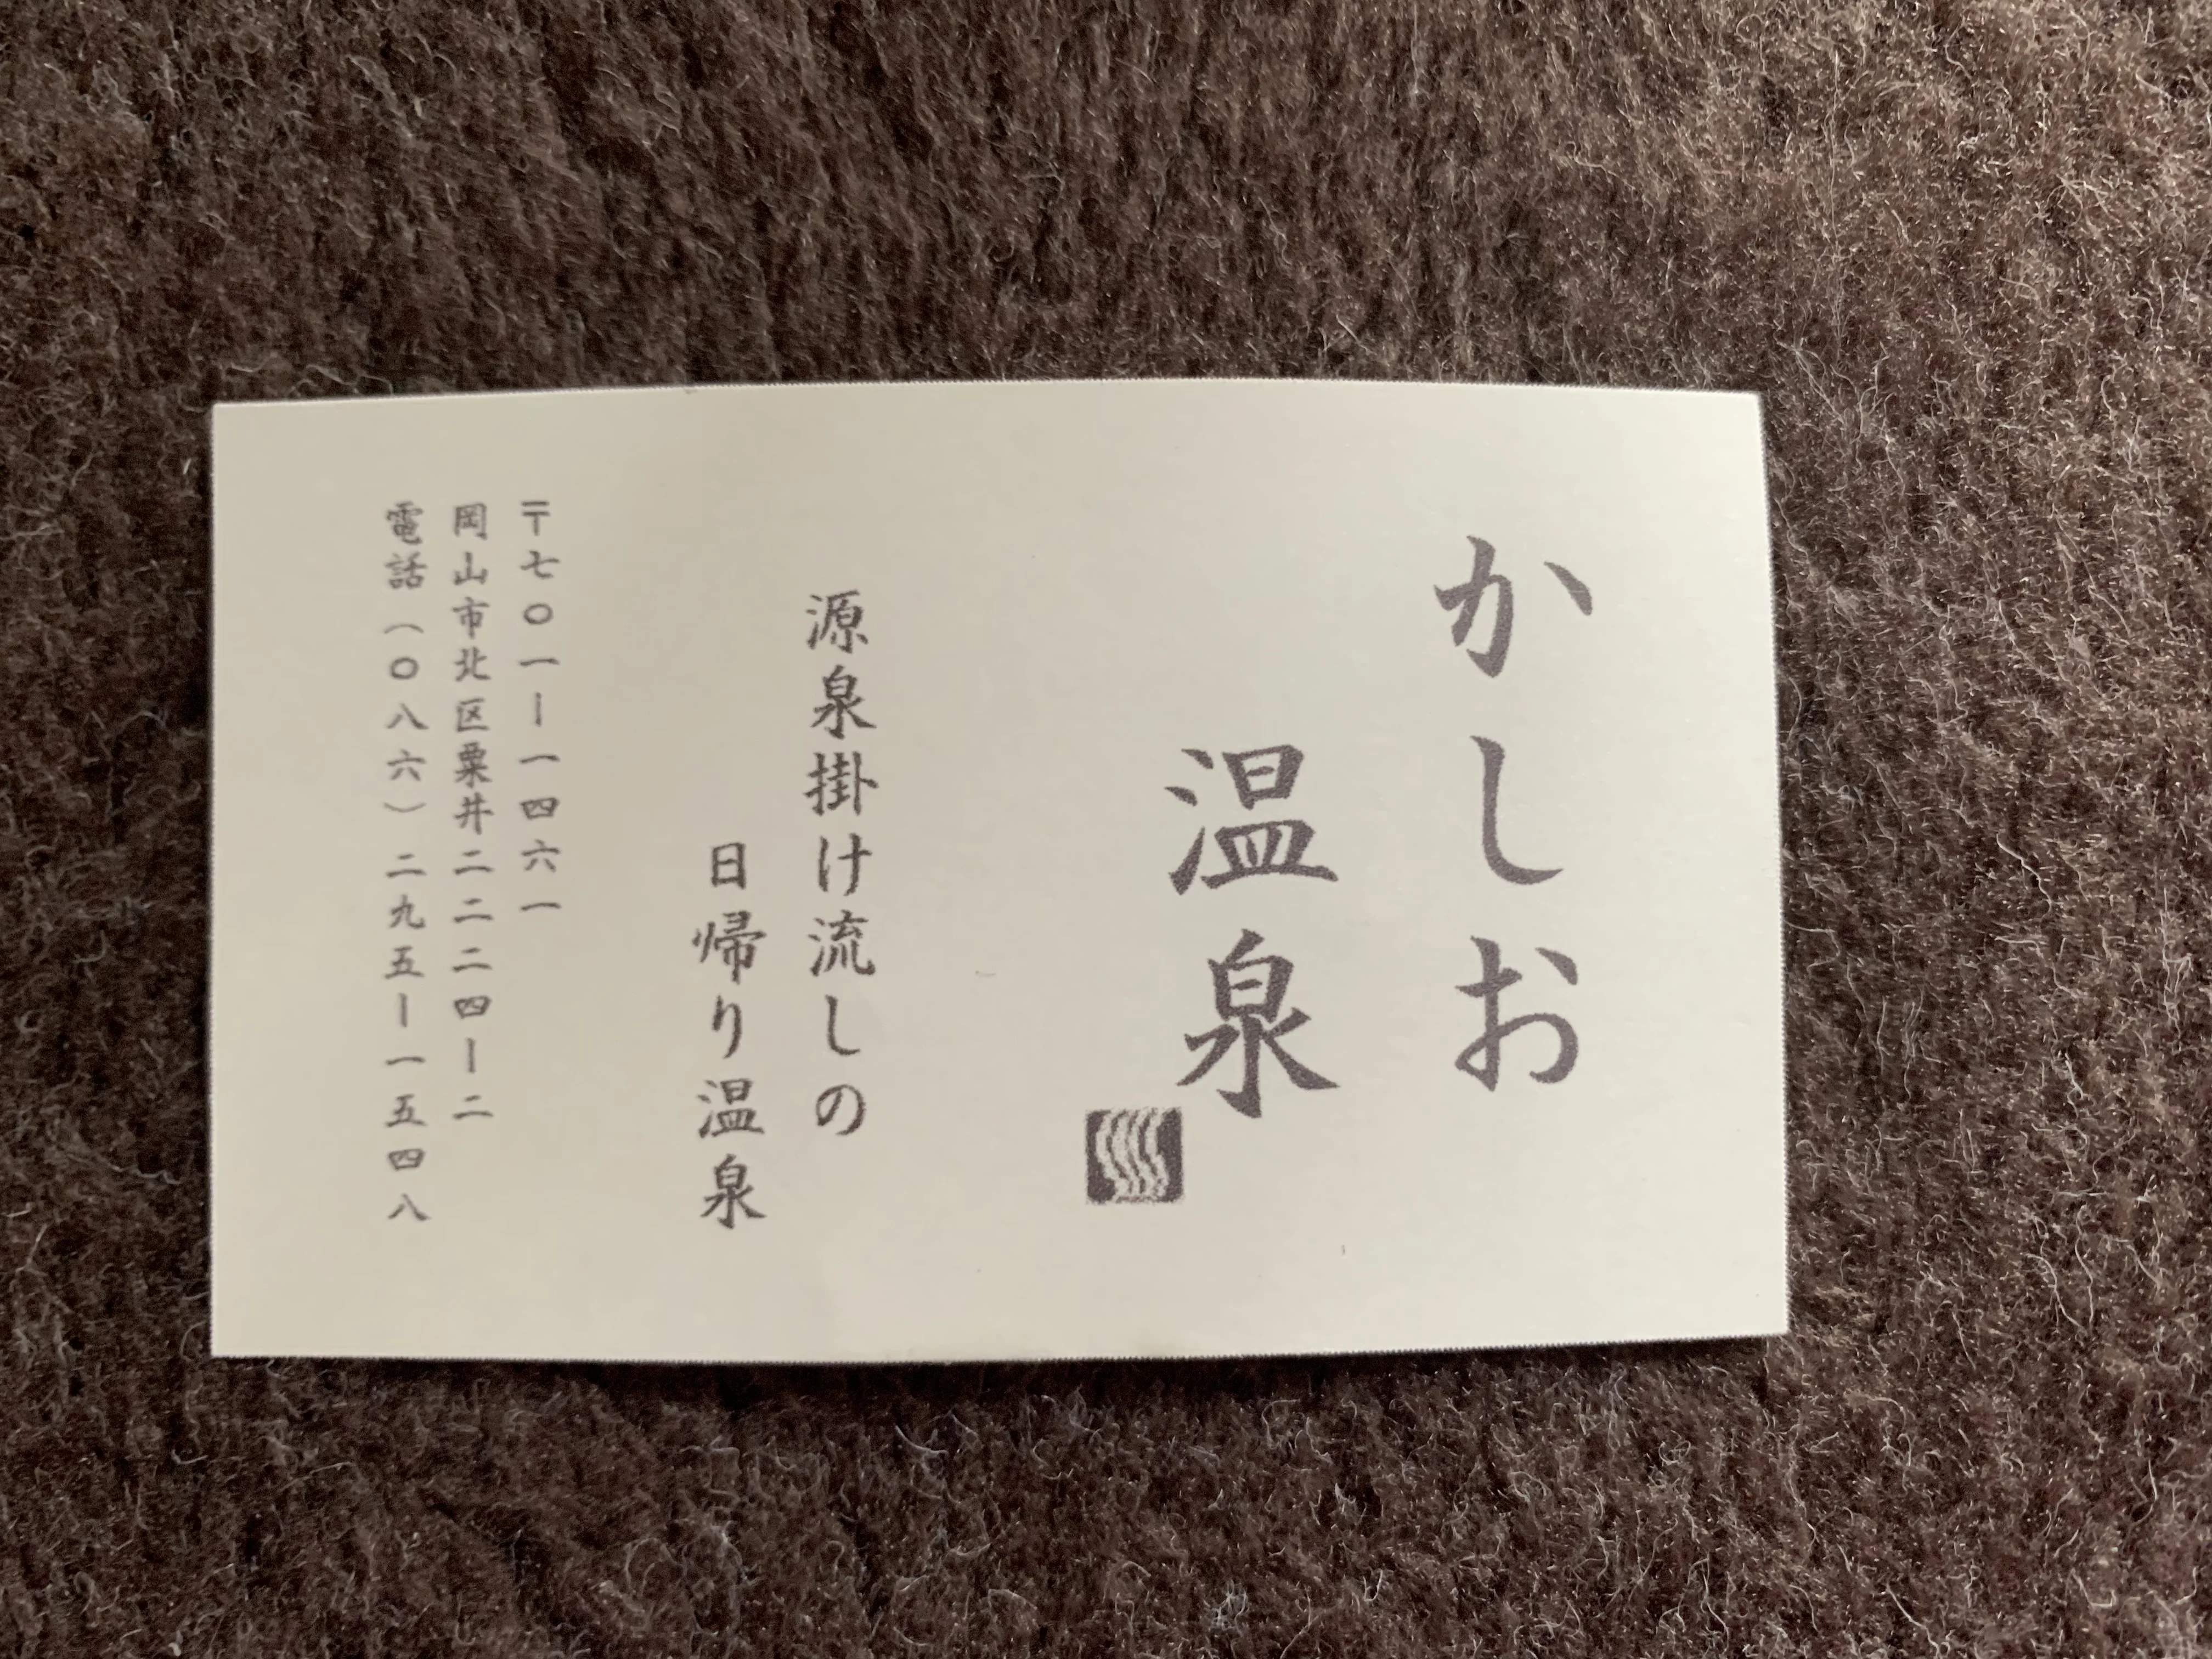 かしお
温泉
源泉掛け流しの
日帰り温泉
〒七〇一ー一四六一
岡山市北区粟井二二二四ー二
電話（〇八六）二九五ー一五四八